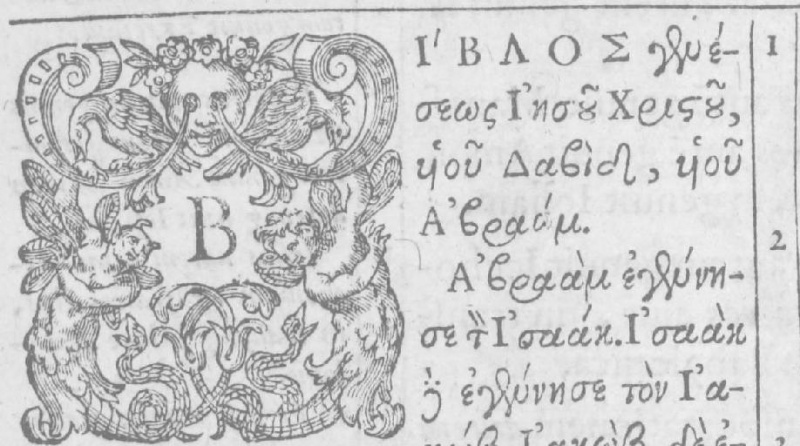 ΒΙ´ΒΛΟΣ γενέ-
σεως Ἰησοῦ Χριστοῦ,
υἱοῦ Δαβὶδ, υἱοῦ
Ἀβραάμ.
Ἀβραὰμ ἐγέννη-
σε τὸν Ἰσαάκ. Ἰσαὰκ
δὲ ἐγέννησε τὸν Ἰα-
1
2